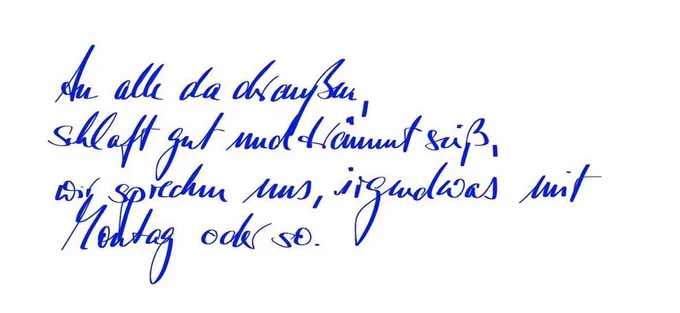 An alle da draußen,
schlaft gut und träumt süß,
wir sprechen uns, irgendwas mit
Montag oder so.